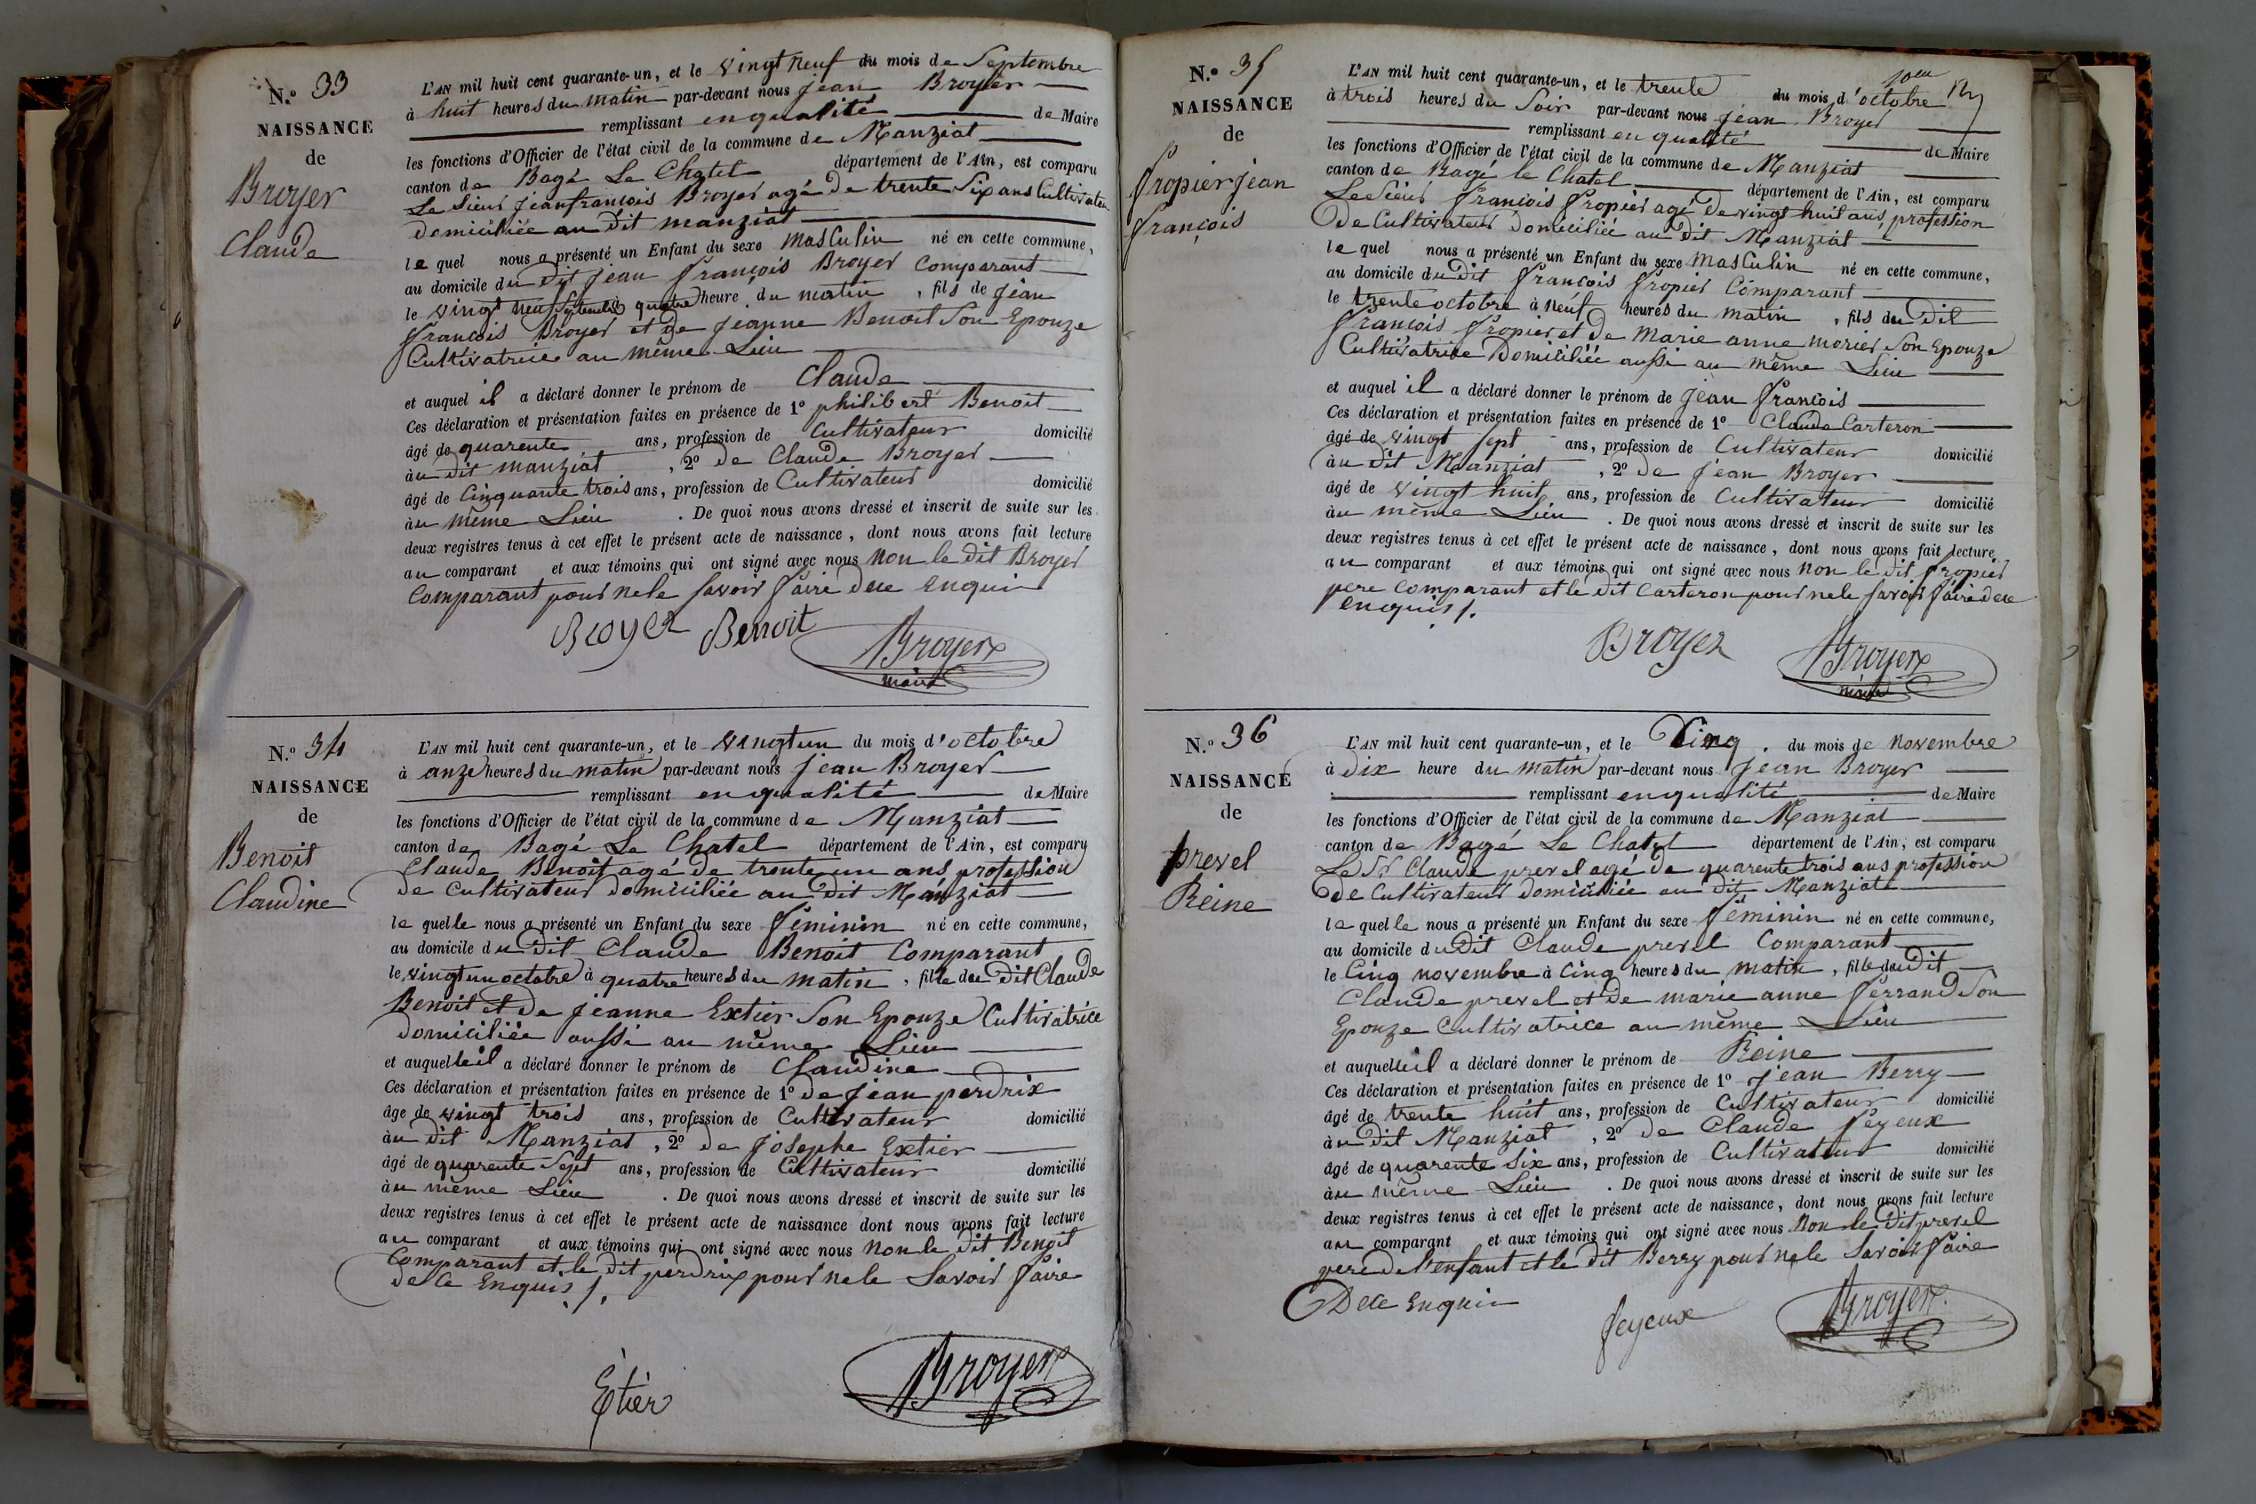 N.º 33
NAISSANCE
de
Broyer
Claude
L'AN mil huit cent quarante-un, et le vingt neuf du mois de Septembre
à huit heures du matin par-devant nous jean Broyer
remplissant en qualité de Maire
les fonctions d'Officier de l'état civil de la commune de Manziat
canton de Bagé Le Chatel département de l'Ain, est comparu
Le Sieur jean françois Broyer agé de trente Six ans Cultivateur
domiciliée au dit manziat
le quel nous a présenté un Enfant du sexe masculin né en cette commune,
au domicile du dit jean françois Broyer Comparant
le vingt neuf Septembre à quatre heure du matin, fils de jean
françois Broyer et de jeanne Benoit Son Epouze
Cultivatrice au même Lieu
et auquel il a déclaré donner le prénom de Claude
Ces déclaration et présentation faites en présence de 1º philibert Benoit
âgé de quarente ans, profession de Cultivateur domicilié
àu dit manziat, 2º de Claude Broyer
âgé de Cinquante trois ans, profession de Cultivateur domicilié
àu même Lieu. De quoi nous avons dressé et inscrit de suite sur les
deux registres tenus à cet effet le présent acte de naissance, dont nous avons fait lecture
au comparant et aux témoins qui ont signé avec nous non le dit Broyer
Comparant pour ne le Savoir faire dece enquis
Broyer Benoit Broyer
maire
N.º 34
NAISSANCE
de
Benoit
Claudine
L'AN mil huit cent quarante-un, et le vingt un du mois d'octobre
à anze heures du matin par-devant nous jean Broyer
remplissant en qualité de Maire
les fonctions d'Officier de l'état civil de la commune de Manziat
canton de Bagé Le Chatel département de l'Ain, est comparu
Claude Benoit agé de trente un ans profession
de Cultivateur domiciliée au dit Manziat
le quelle nous a présenté un Enfant du sexe féminin né en cette commune,
au domicile du dit Claude Benoit Comparant
le vingt un octobre à quatre heures du matin, fille du dit Claude
Benoit et de jeanne Extier Son Epouze Cultivatrice
domiciliée aussi au même Lieu
et auquelle il a déclaré donner le prénom de Claudine
Ces déclaration et présentation faites en présence de 1º de jean perdrix
âge de vingt trois ans, profession de Cultivateur domicilié
àu dit Manziat, 2º de josephe Extier
âgé de quarente Sept ans, profession de Cultivateur domicilié
àu même Lieu. De quoi nous avons dressé et inscrit de suite sur les
deux registres tenus à cet effet le présent acte de naissance dont nous avons fait lecture
au comparant et aux témoins qui ont signé avec nous non le dit Benoit
Comparant et le dit perdrix pour ne le Savoir faire
de Ce Enquis /.
Étier Broyer
N.º 35
NAISSANCE
de
fropier jean
françois
L'AN mil huit cent quarante-un, et le trente du mois d'octobre
à trois heures du Soir par-devant nous jean Broyer
remplissant en qualité de Maire
les fonctions d'Officier de l'état civil de la commune de Manziat
canton de Bagé le Chatel département de l'Ain, est comparu
Le Sieur françois fropier agé de vingt huit ans, profession
de Cultivateur domiciliée au dit Manziat
le quel nous a présenté un Enfant du sexe masculin né en cette commune,
au domicile du dit françois fropier Comparant
le trente octobre à neuf heures du matin, fils du dit
françois fropier et de Marie anne morier Son Epouze
Cultivatrice Domiciliée aussi au même Lieu
et auquel il a déclaré donner le prénom de jean françois
Ces déclaration et présentation faites en présence de 1º Claude Carteron
âgé de vingt sept ans, profession de Cultivateur domicilié
àu dit Manziat, 2º de jean Broyer
âgé de vingt huit ans, profession de Cultivateur domicilié
àu même Lieu. De quoi nous avons dressé et inscrit de suite sur les
deux registres tenus à cet effet le présent acte de naissance, dont nous avons fait lecture
au comparant et aux témoins qui ont signé avec nous non le dit fropier
pere comparant et le dit Carteron pour ne le Savoir faire dece
enquis /.
Broyer Broyer
maire
N.º 36
NAISSANCE
de
prevel
Reine
L'AN mil huit cent quarante-un, et le Cinq. du mois de novembre
à dix heure du matin par-devant nous jean Broyer
remplissant en qualité de Maire
les fonctions d'Officier de l'état civil de la commune de Manziat
canton de Bagé Le Chatel département de l'Ain, est comparu
Le Sr Claude prevel agé de quarente trois ans profession
de Cultivateur domiciliée au dit Manziat
le quelle nous a présenté un Enfant du sexe féminin né en cette commune,
au domicile du dit Claude prevel Comparant
le Cinq novembre à Cinq heures du matin, fille du dit
Claude prevel et de marie anne ferrand Son
Epouze Cultivatrice au même Lieu
et auquelle il a déclaré donner le prénom de Reine
Ces déclaration et présentation faites en présence de 1º jean Berry
âgé de trente huit ans, profession de Cultivateur domicilié
àu dit Manziat, 2º de Claude feyeux
âgé de quarente Six ans, profession de Cultivateur domicilié
àu même Lieu. De quoi nous avons dressé et inscrit de suite sur les
deux registres tenus à cet effet le présent acte de naissance, dont nous avons fait lecture
au comparant et aux témoins qui ont signé avec nous non le dit prevel
pere de l'enfant et le dit Berry pour ne le Savoir faire
Dece Enquis
feyeux Broyer